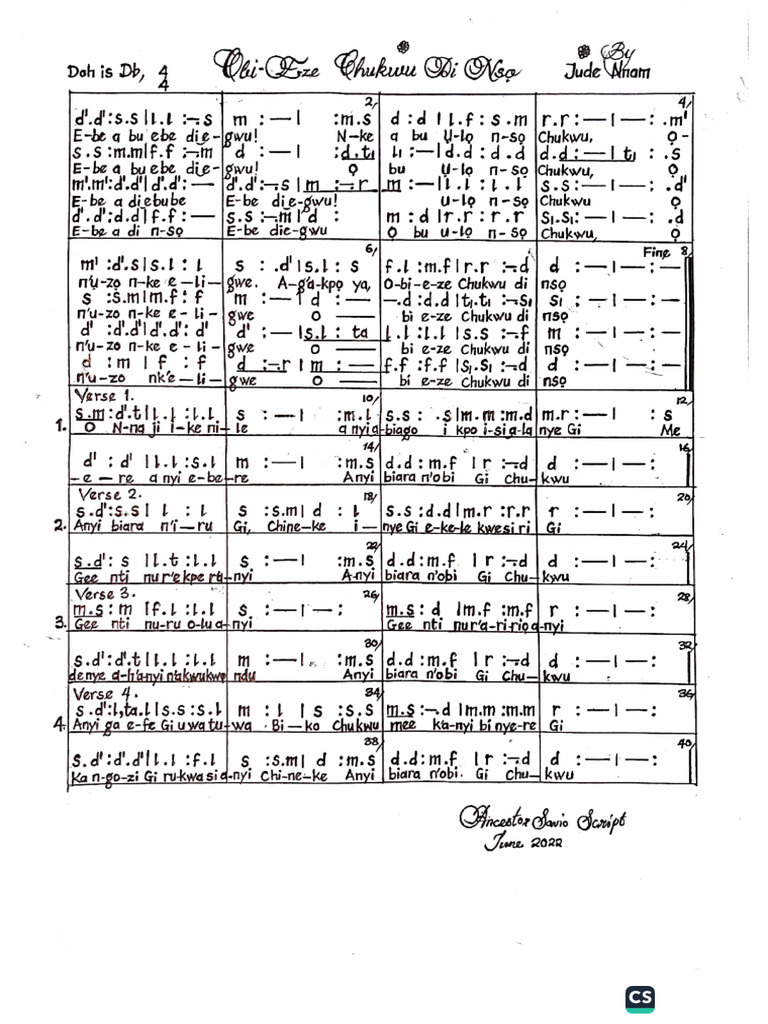 Doh is Db, 4/4
Obi-Eze Chukwu Di Nsọ
By
Jude Nnam
2/ 4/
d'.d':s.s|l.l :-.s m :—| :m.s d :d |l.f:s.m r.r:—|—:.m'
E-be a bu ebe di e-gwu! N-ke a bu ụ-lọ n-sọ Chukwu, Ọ-
s.s:m.m|f.f:-.m d :—| :d.t₁ l₁:—|d.d:d.d d.d:—|t₁:.s
E-be a bu ebe di e-gwu! Ọ bu ụ-lọ n-sọ Chukwu, Ọ
m'.m':d'.d'|d'.d':— d'.d':-.s|m:-.r m:—|l.l:l.l s.s:—|—:.d'
E-be a di ebube E-be di e-gwu! ụ-lọ n-sọ Chukwu Ọ
d'.d':d.d|f.f:— s.s:-.m|d : m:d|r.r:r.r s₁.s₁:—|—:.d
E-be a di n-sọ E-be di e-gwu Ọ bu ụ-lọ n-sọ Chukwu, Ọ
6/ Fine 8/
m':d'.s|s.l:l s :.d'|s.l:s f.l:m.f|r.r:-.d d :—|—:—
n'u-zọ n-ke e-li-gwe. A-g'a-kpọ ya, O-bi-e-ze Chukwu di nsọ
s :s.m|m.f:f m :—|d :— -.d:d.d|t₁.t₁:-.s₁ s₁:—|—:—
n'u-zọ n-ke e-li-gwe O— bi e-ze Chukwu di nsọ
d' :d'.d'|d'.d':d' d' :—|s.l:ta l.l:l.l|s.s:-.f m :—|—:—
n'u-zọ n-ke e-li-gwe O— bi e-ze Chukwu di nsọ
d :m|f :f d :-.r|m:— f.f:f.f|s₁.s₁:-.d d :—|—:—
n'u-zo nk'e-li-gwe O— bi e-ze Chukwu di nsọ
Verse 1. 10/ 12/
s.m:d'.t|l.l:l.l s :—| :m.l s.s: .s|m.m:m.d m.r:—| :s
1. O N-na ji i-ke ni-le a nyi a-biago i kpo i-si a-la nye Gi Me
14/ 16/
d' :d'|l.l:s.l m :—| :m.s d.d:m.f |r:-.d d :—|—:
-e-re a nyi e-be-re Anyi biara n'obi Gi Chu-kwu
Verse 2. 18/ 20/
s.d':s.s|l :l s :s.m|d :l s.s:d.d|m.r:r.r r :—|—:
2. Anyi biara n'i-ru Gi, Chine-ke i-nye Gi e-ke-le kwesi ri Gi
22/ 24/
s.d':s|l.t:l.l s :—| :m.s d.d:m.f |r:-.d d :—|—:
Gee nti nu r'e kpe rā-nyi A-nyi biara n'obi Gi Chu-kwu
Verse 3. 26/ 28/
m.s:m|f.l:l.l s :—|—: m.s:d|m.f:m.f r :—|—:
3. Gee nti nu-ru o-lu a-nyi Gee nti nur'a-ri-rio a-nyi
30/ 32/
s.d':d'.t|l.l:l.l m :—|. :m.s d.d:m.f |r:-.d d :—|—:
denye a-h'a-nyi n'akwukwo ndu Anyi biara n'obi Gi Chu-kwu
Verse 4. 34/ 36/
s.d':l,ta.l|s.s:s.l m :l|s :s.s m.s:-.d|m.m:m.m r :—|—:
4. Anyi ga e-fe Gi u wa tu-wa Bi-ko Chukwu mee ka-nyi bi nye-re Gi
38/ 40/
s.d':d'.d'|l.l:f.l s :s.m|d :m.s d.d:m.f |r:-.d d :—|—:
Ka n-go-zi Gi ru-kwa si a-nyi Chi-ne-ke Anyi biara n'obi. Gi Chu-kwu
Ancestor Savio Script
June 2022
CS